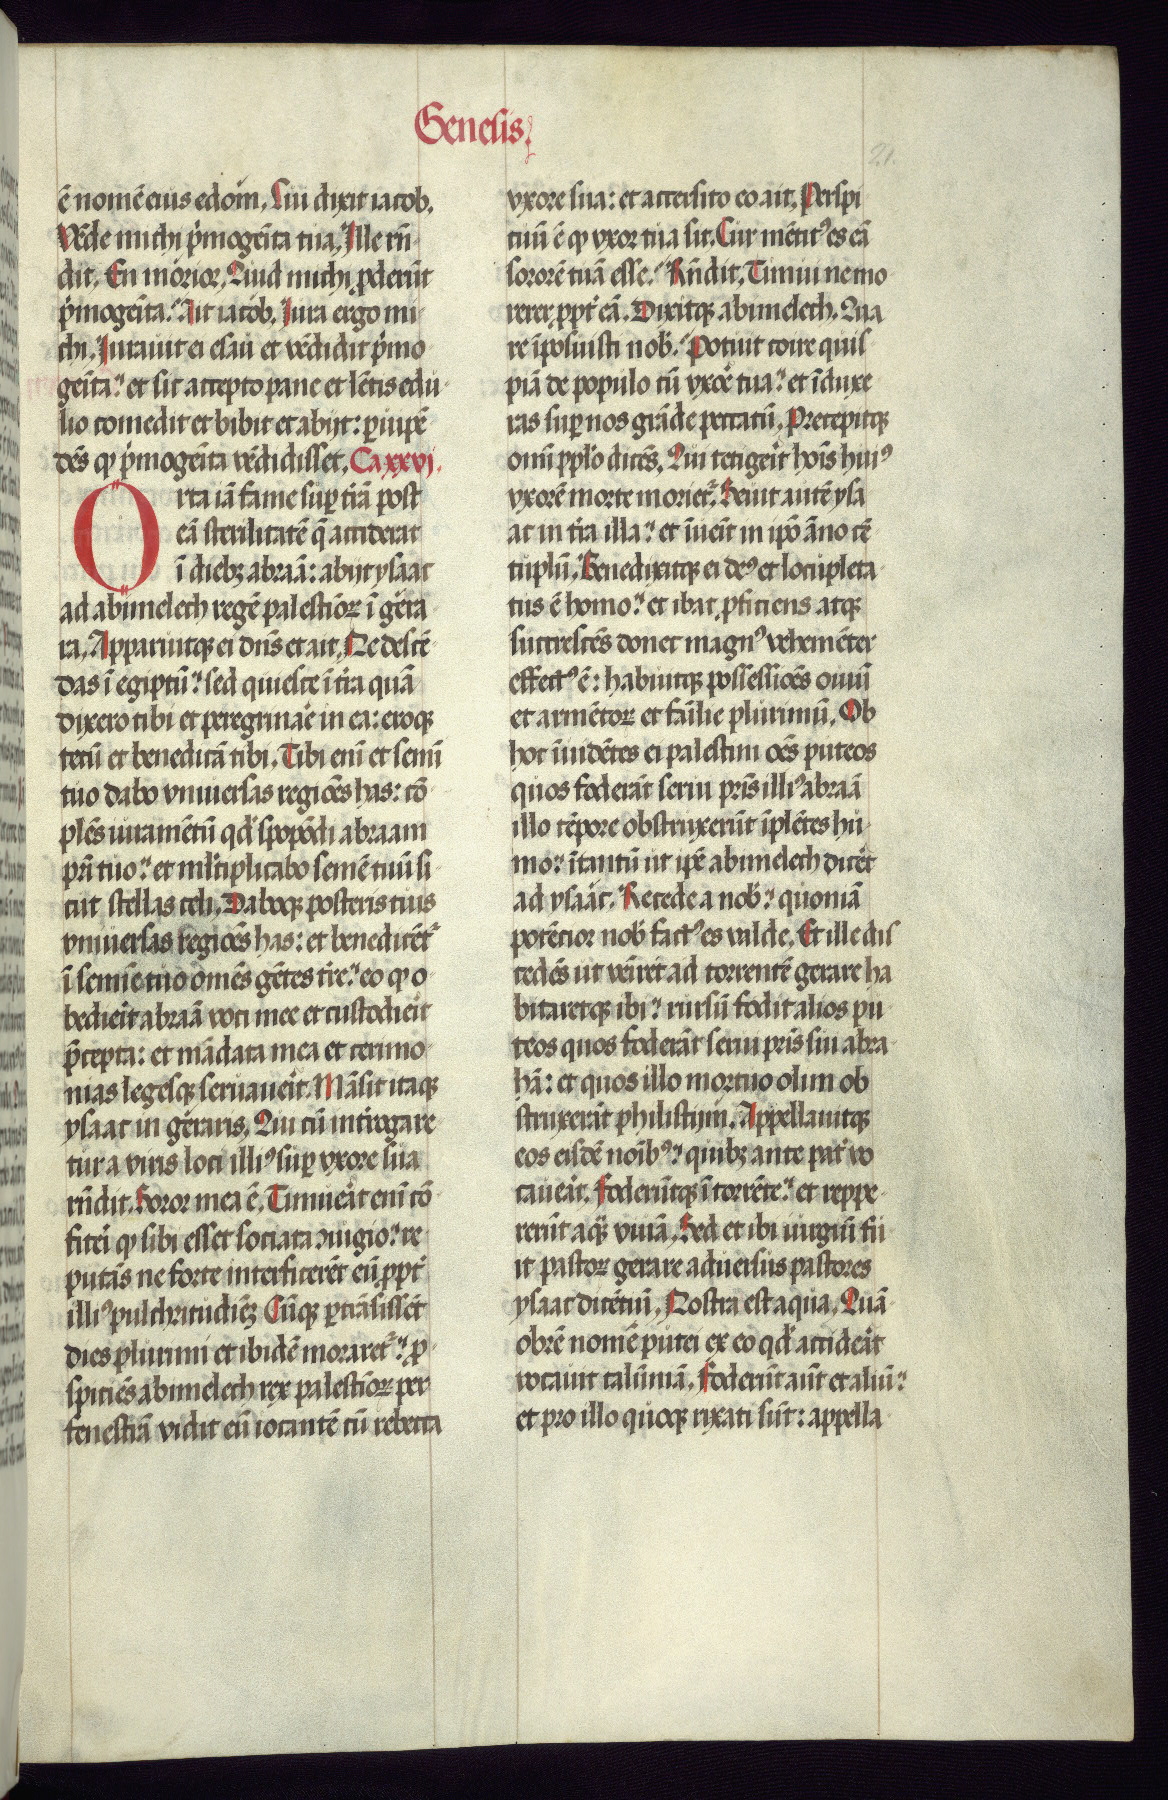 Genesis
21.
ē nomē eius edom. Cui dixit iacob.
Vēde michi p̄mogēita tua. Ille rn̄
dit. En morior. Quid michi ꝓderūt
p̄mogēita. Ait iacob. Iura ergo mi
chi. Iurauit ei esau et vēdidit p̄mo
gēita: et sic accepto pane et lētis edu
lio comedit et bibit et abijt: ꝑuipē
dēs qꝫ p̄mogēita vēdidisset. Ca xxvj.
Orta iā fame suꝑ trā post
eā sterilitatē q̄ acciderat
ī diebꝫ abraā: abijt ysaac
ad abimelech regē palestīoꝝ ī gera
ra. Apparuitqꝫ ei dn̄s et ait. Ne descē
das ī egiptū: sed quiesce ī tr̄a quā
dixero tibi et peregrinare in ea: eroqꝫ
tecū et benedicā tibi. Tibi eni et semī
tuo dabo vniuersas regiōes has: cō
plēs iuramētū qd̓ spopōdi abraam
pr̄i tuo: et ml̓tiplicabo semē tuū si
cut stellas celi. Daboqꝫ posteris tuis
vniuersas regiōes has: et benedicēt᷑
ī semīe tuo omēs gētes tr̄e: eo qꝫ o
bedierit abraā voci mee et custodierit
p̄cepta: et mādata mea et cerimo
nias legesqꝫ seruauerit. Māsit itaqꝫ
ysaac in geraris. Qui cū int̓rogare
tur a viris loci illiꝰ suꝑ vxore sua
rn̄dit. Soror mea ē. Timuerat eni cō
fiteri qꝫ sibi esset sociata ꝯiugio: re
putās ne forte interficerēt eū ꝓpt̓
illiꝰ pulchritudiēꝫ Cūqꝫ ꝑtrāsissēt
dies plurimi et ibidē moraret᷑: ꝓ
spiciēs abimelech rex palestīoꝝ per
fenestrā vidit eū iocantē cū rebecca
vxore sua: et accersito eo ait. Perspi
cuū ē qꝫ vxor tua sit. Cur mētitꝰ es eā
sororē tuā esse. Rn̄dit. Timui ne mo
rerer ꝓpt̓ eā. Dixitqꝫ abimelech. Qua
re īposuisti nob̓. Potuit coire quis
piā de populo cū vxore tua: et īduxe
ras suꝑ nos grāde peccatū. Precepitqꝫ
omī ppl̓o dicēs. Qui tetigerit hoīs huiꝰ
vxorē morte moriet᷑. Seuit autē ysa
ac in tr̄a illa: et īueīt in ip̄o āno cē
tuplū. Benedixitqꝫ ei deꝰ et locupleta
tus ē homo: et ibat ꝓficiens atqꝫ
succrescēs donec magnꝰ vehemēter
effectꝰ ē: habuitqꝫ possessiōes ouiū
et armētoꝝ et familie plurimū. Ob
hoc īuidētes ei palestini oēs puteos
quos foderāt serui pr̄is illiꝰ abraā
illo tēpore obstruxerūt īplētes hu
mo: ītantū ut ip̄e abimelech diceret
ad ysaac. Recede a nob̓: quoniā
potēcior nob̓ factꝰ es valde. Et ille dis
cedēs ut veniret ad torrentē gerare ha
bitaretqꝫ ibi: rursū fodit alios pu
teos quos foderāt serui pris sui abra
hā: et quos illo mortuo olim ob
struxerāt philistijm. Appellauitqꝫ
eos eisdē noībꝰ: quibꝫ ante pat̓ vo
cauerat. Foderūtqꝫ ī torrēte: et reppe
rerūt aquā viuā. Sed et ibi iurgiū fu
it pastoꝝ gerare aduersus pastores
ysaac dicētiū. Nostra est aqua. Quā
obrē nomē putei ex eo qd̓ acciderat
vocauit calūniā. Foderūt aūt et aliū:
et pro illo quoqꝫ rixati sūt: appella